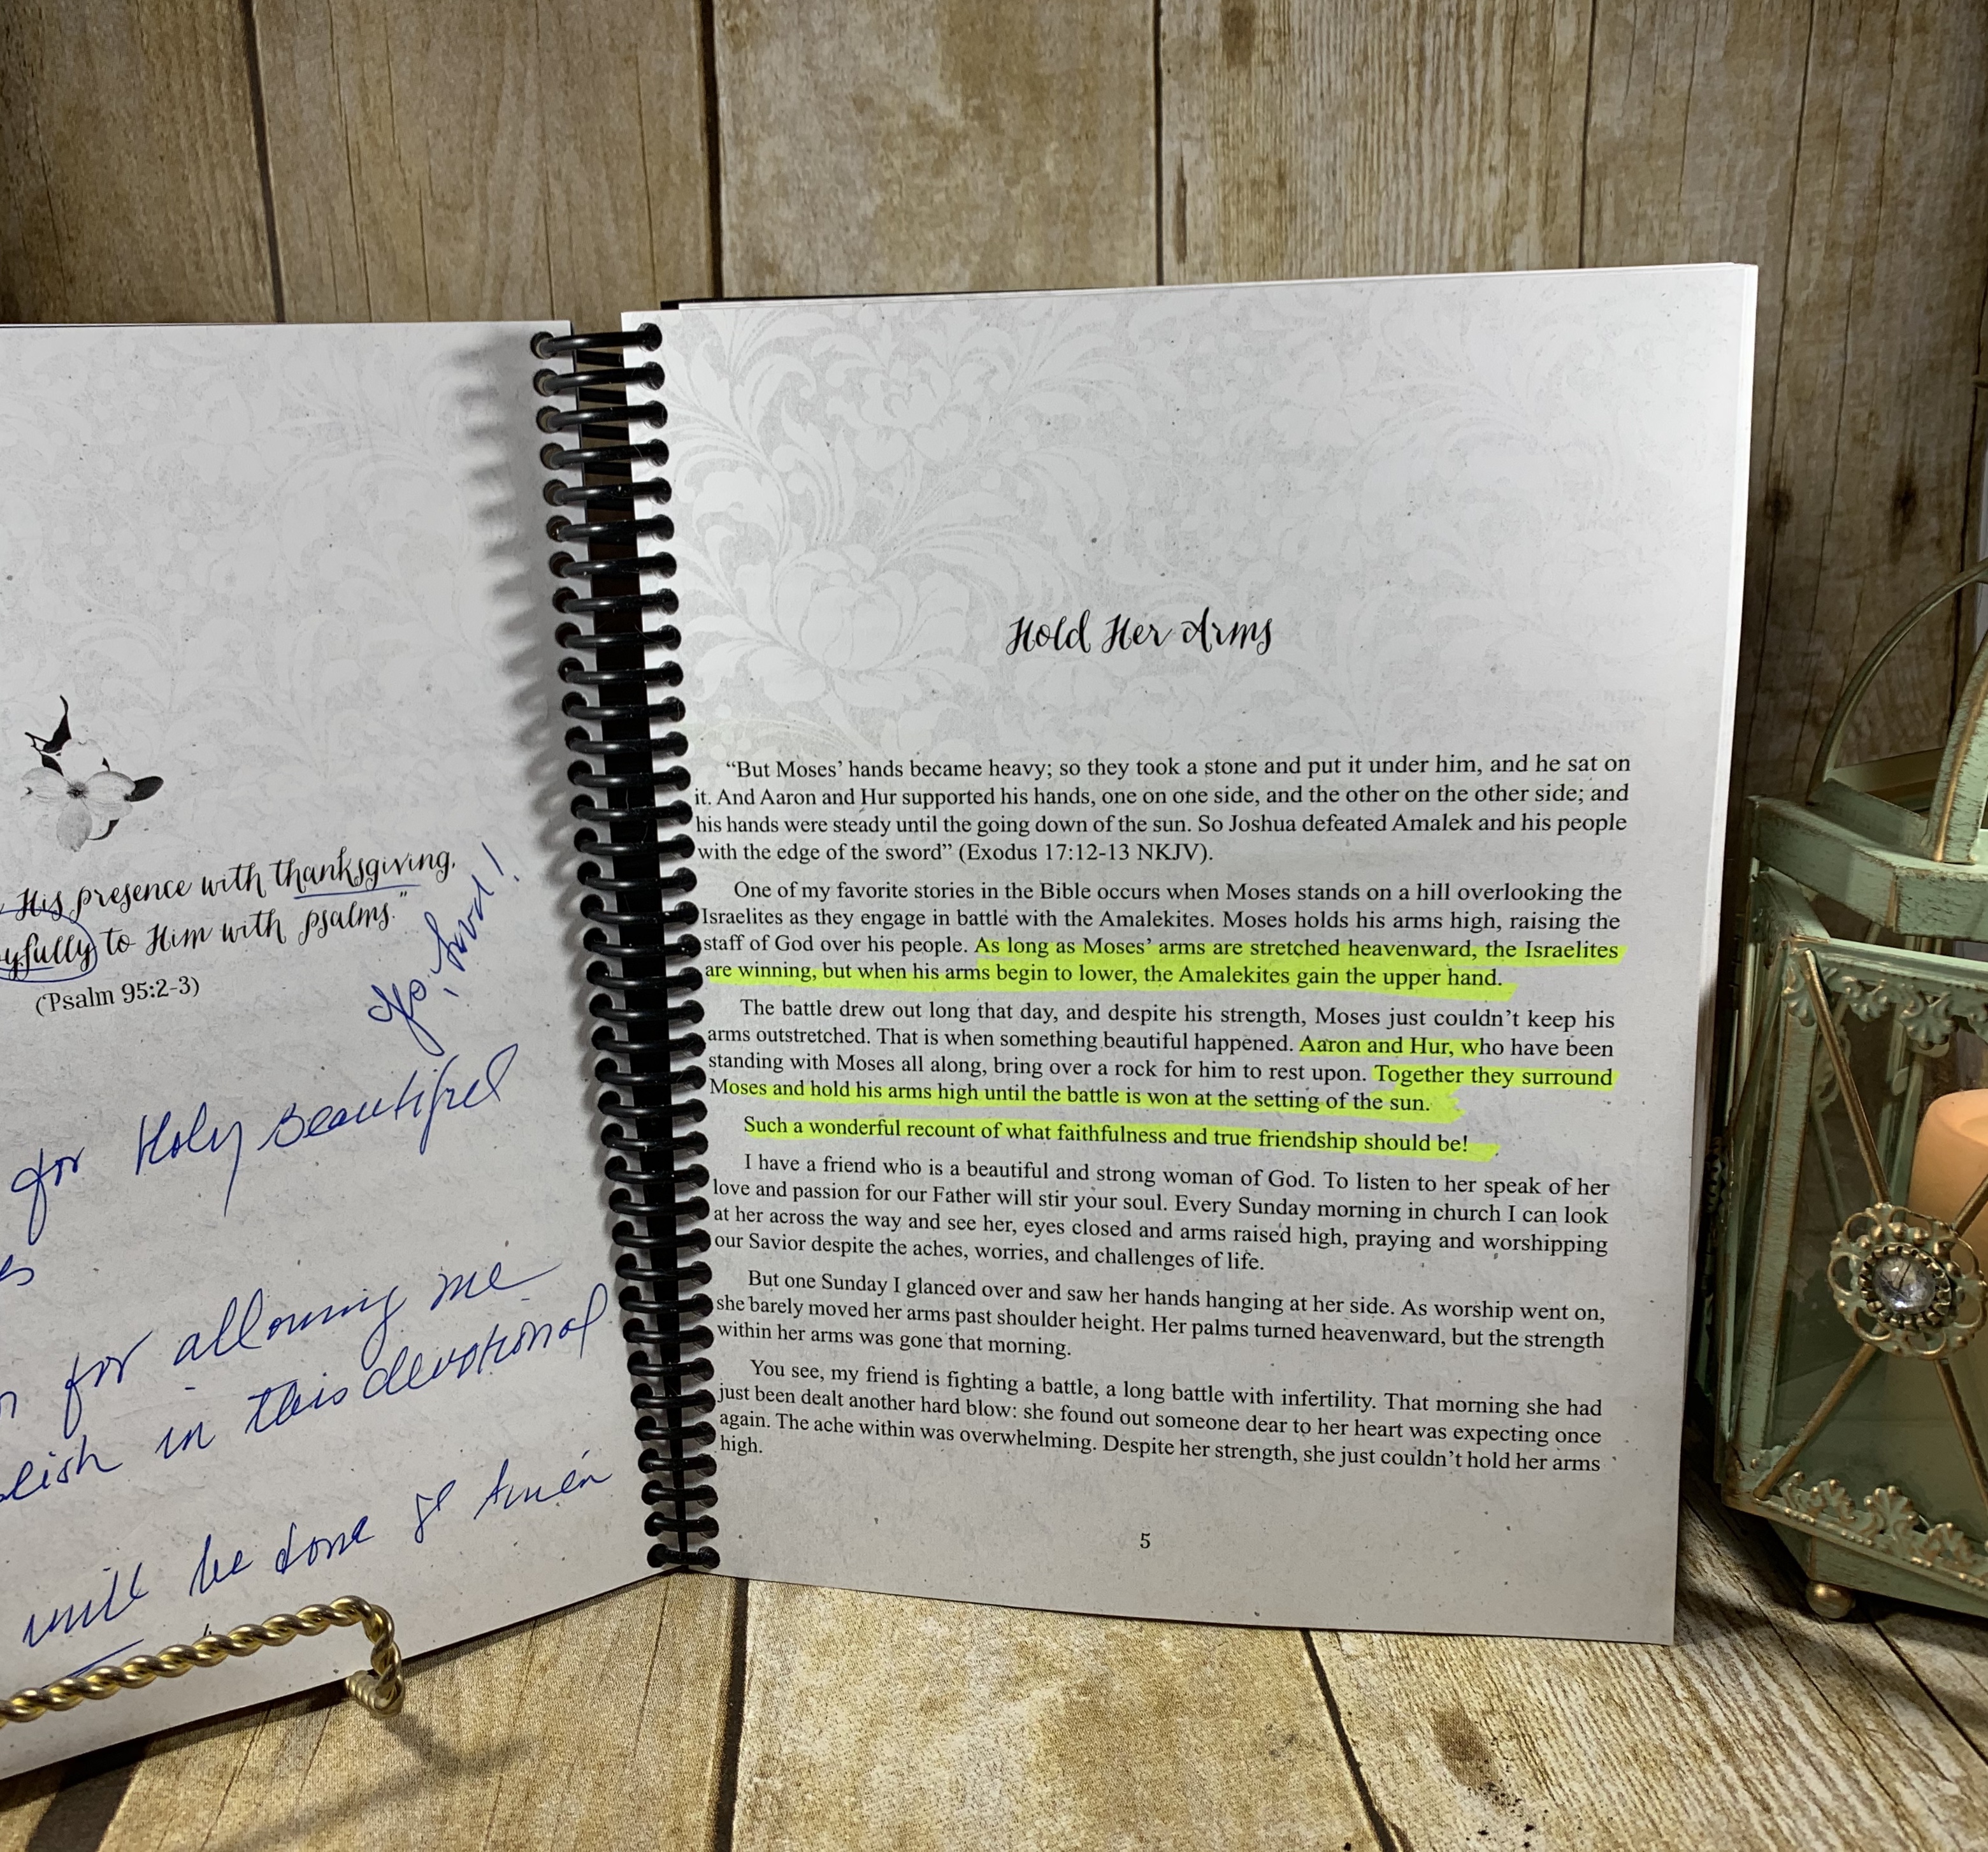 His presence with thanksgiving,
yfully to Him with psalms."
(Psalm 95:2-3)
for Holy Beautiful
for allowing me
lish in this devotional
will be done
Hold Her Arms
“But Moses’ hands became heavy; so they took a stone and put it under him, and he sat on
it. And Aaron and Hur supported his hands, one on one side, and the other on the other side; and
his hands were steady until the going down of the sun. So Joshua defeated Amalek and his people
with the edge of the sword” (Exodus 17:12-13 NKJV).
One of my favorite stories in the Bible occurs when Moses stands on a hill overlooking the
Israelites as they engage in battle with the Amalekites. Moses holds his arms high, raising the
staff of God over his people. As long as Moses’ arms are stretched heavenward, the Israelites
are winning, but when his arms begin to lower, the Amalekites gain the upper hand.
The battle drew out long that day, and despite his strength, Moses just couldn’t keep his
arms outstretched. That is when something beautiful happened. Aaron and Hur, who have been
standing with Moses all along, bring over a rock for him to rest upon. Together they surround
Moses and hold his arms high until the battle is won at the setting of the sun.
Such a wonderful recount of what faithfulness and true friendship should be!
I have a friend who is a beautiful and strong woman of God. To listen to her speak of her
love and passion for our Father will stir your soul. Every Sunday morning in church I can look
at her across the way and see her, eyes closed and arms raised high, praying and worshipping
our Savior despite the aches, worries, and challenges of life.
But one Sunday I glanced over and saw her hands hanging at her side. As worship went on,
she barely moved her arms past shoulder height. Her palms turned heavenward, but the strength
within her arms was gone that morning.
You see, my friend is fighting a battle, a long battle with infertility. That morning she had
just been dealt another hard blow: she found out someone dear to her heart was expecting once
again. The ache within was overwhelming. Despite her strength, she just couldn’t hold her arms
high.
5